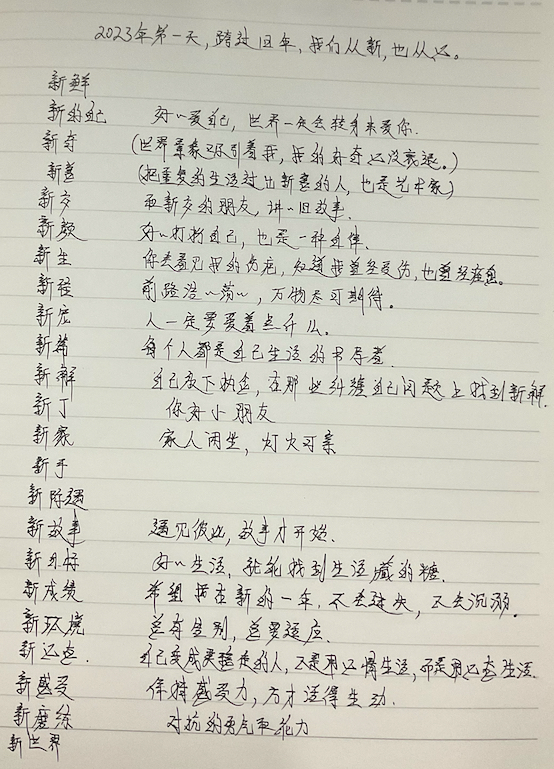 2023年第一天，跨过旧年，我们从新，也从心。
新鲜
新的自己 好好爱自己，世界一定会转身来爱你.
新奇 (世界万象吸引着我，我的好奇心没衰退。)
新意 (把重复的生活过出新意的人，也是艺术家)
新交 和新交的朋友，讲一旧故事.
新颜 好好打扮自己，也是一种自律.
新生 你去看见我的伤疤，知道我曾经受伤，也曾经痊愈。
新程 前路浩浩荡荡，万物尽可期待。
新宠 人一定要爱着点什么。
新篇 每个人都是自己生活的书写者.
新解 自己放下执念，在那些纠缠自己问题上找到新解.
新丁 你好小朋友
新家 家人闲坐，灯火可亲
新手
新际遇
新故事 遇见彼此，故事才开始.
新目标 好好生活，就能找到生活藏的糖.
新成绩 希望我在新的一年，不会迷失，不会沉溺。
新环境 总有告别，总要适应.
新心态. 自己变成更稳定的人，不是用心情生活，而是用心态生活.
新感受 保持感受力，方才活得生动.
新磨练 对抗的勇气和能力
新世界